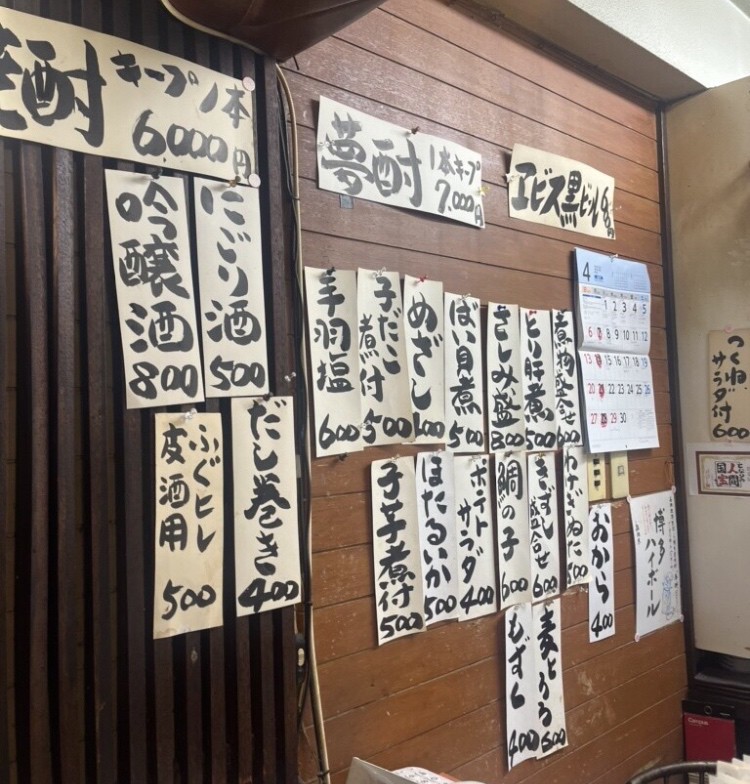 焼酎
キープ1本
6,000円
吟醸酒 800
にごり酒 500
ふぐヒレ
皮酒用
500
だし巻き 400
夢酎
1本キープ
7,000円
エビス黒ビール
手羽塩 600
子だこ
煮付 500
めざし 400
ばい貝煮 500
さしみ盛 800
とり肝煮 500
煮物盛合せ 600
子芋煮付 500
ほたるいか 500
ポテト
サラダ 400
鯛の子 600
きずし
盛合せ 600
わけぎぬた 500
おから 400
もずく 400
麦とろろ 600
4
1 2 3 4 5
6 7 8 9 10 11 12
13 14 15 16 17 18 19
20 21 22 23 24 25 26
27 28 29 30
博多
ハイボール
つくね
サラダ付
600